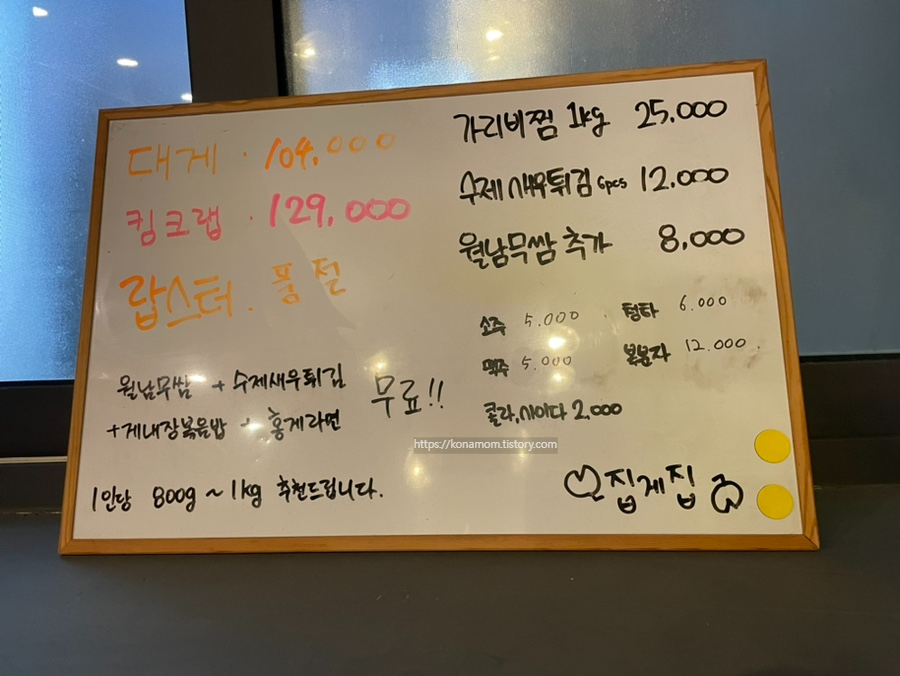 대게 · 104,000
킹크랩 · 129,000
랍스터 . 품절
월남무쌈 + 수제새우튀김
+ 게내장볶음밥 + 홍게라면
무료!!
1인당 800g ~ 1kg 추천드립니다.
가리비찜 1kg 25,000
수제새우튀김 6pcs 12,000
월남무쌈 추가 8,000
소주 5.000 청하 6.000
맥주 5.000 복분자 12.000
콜라, 사이다 2,000
https://konamom.tistory.com
집게집